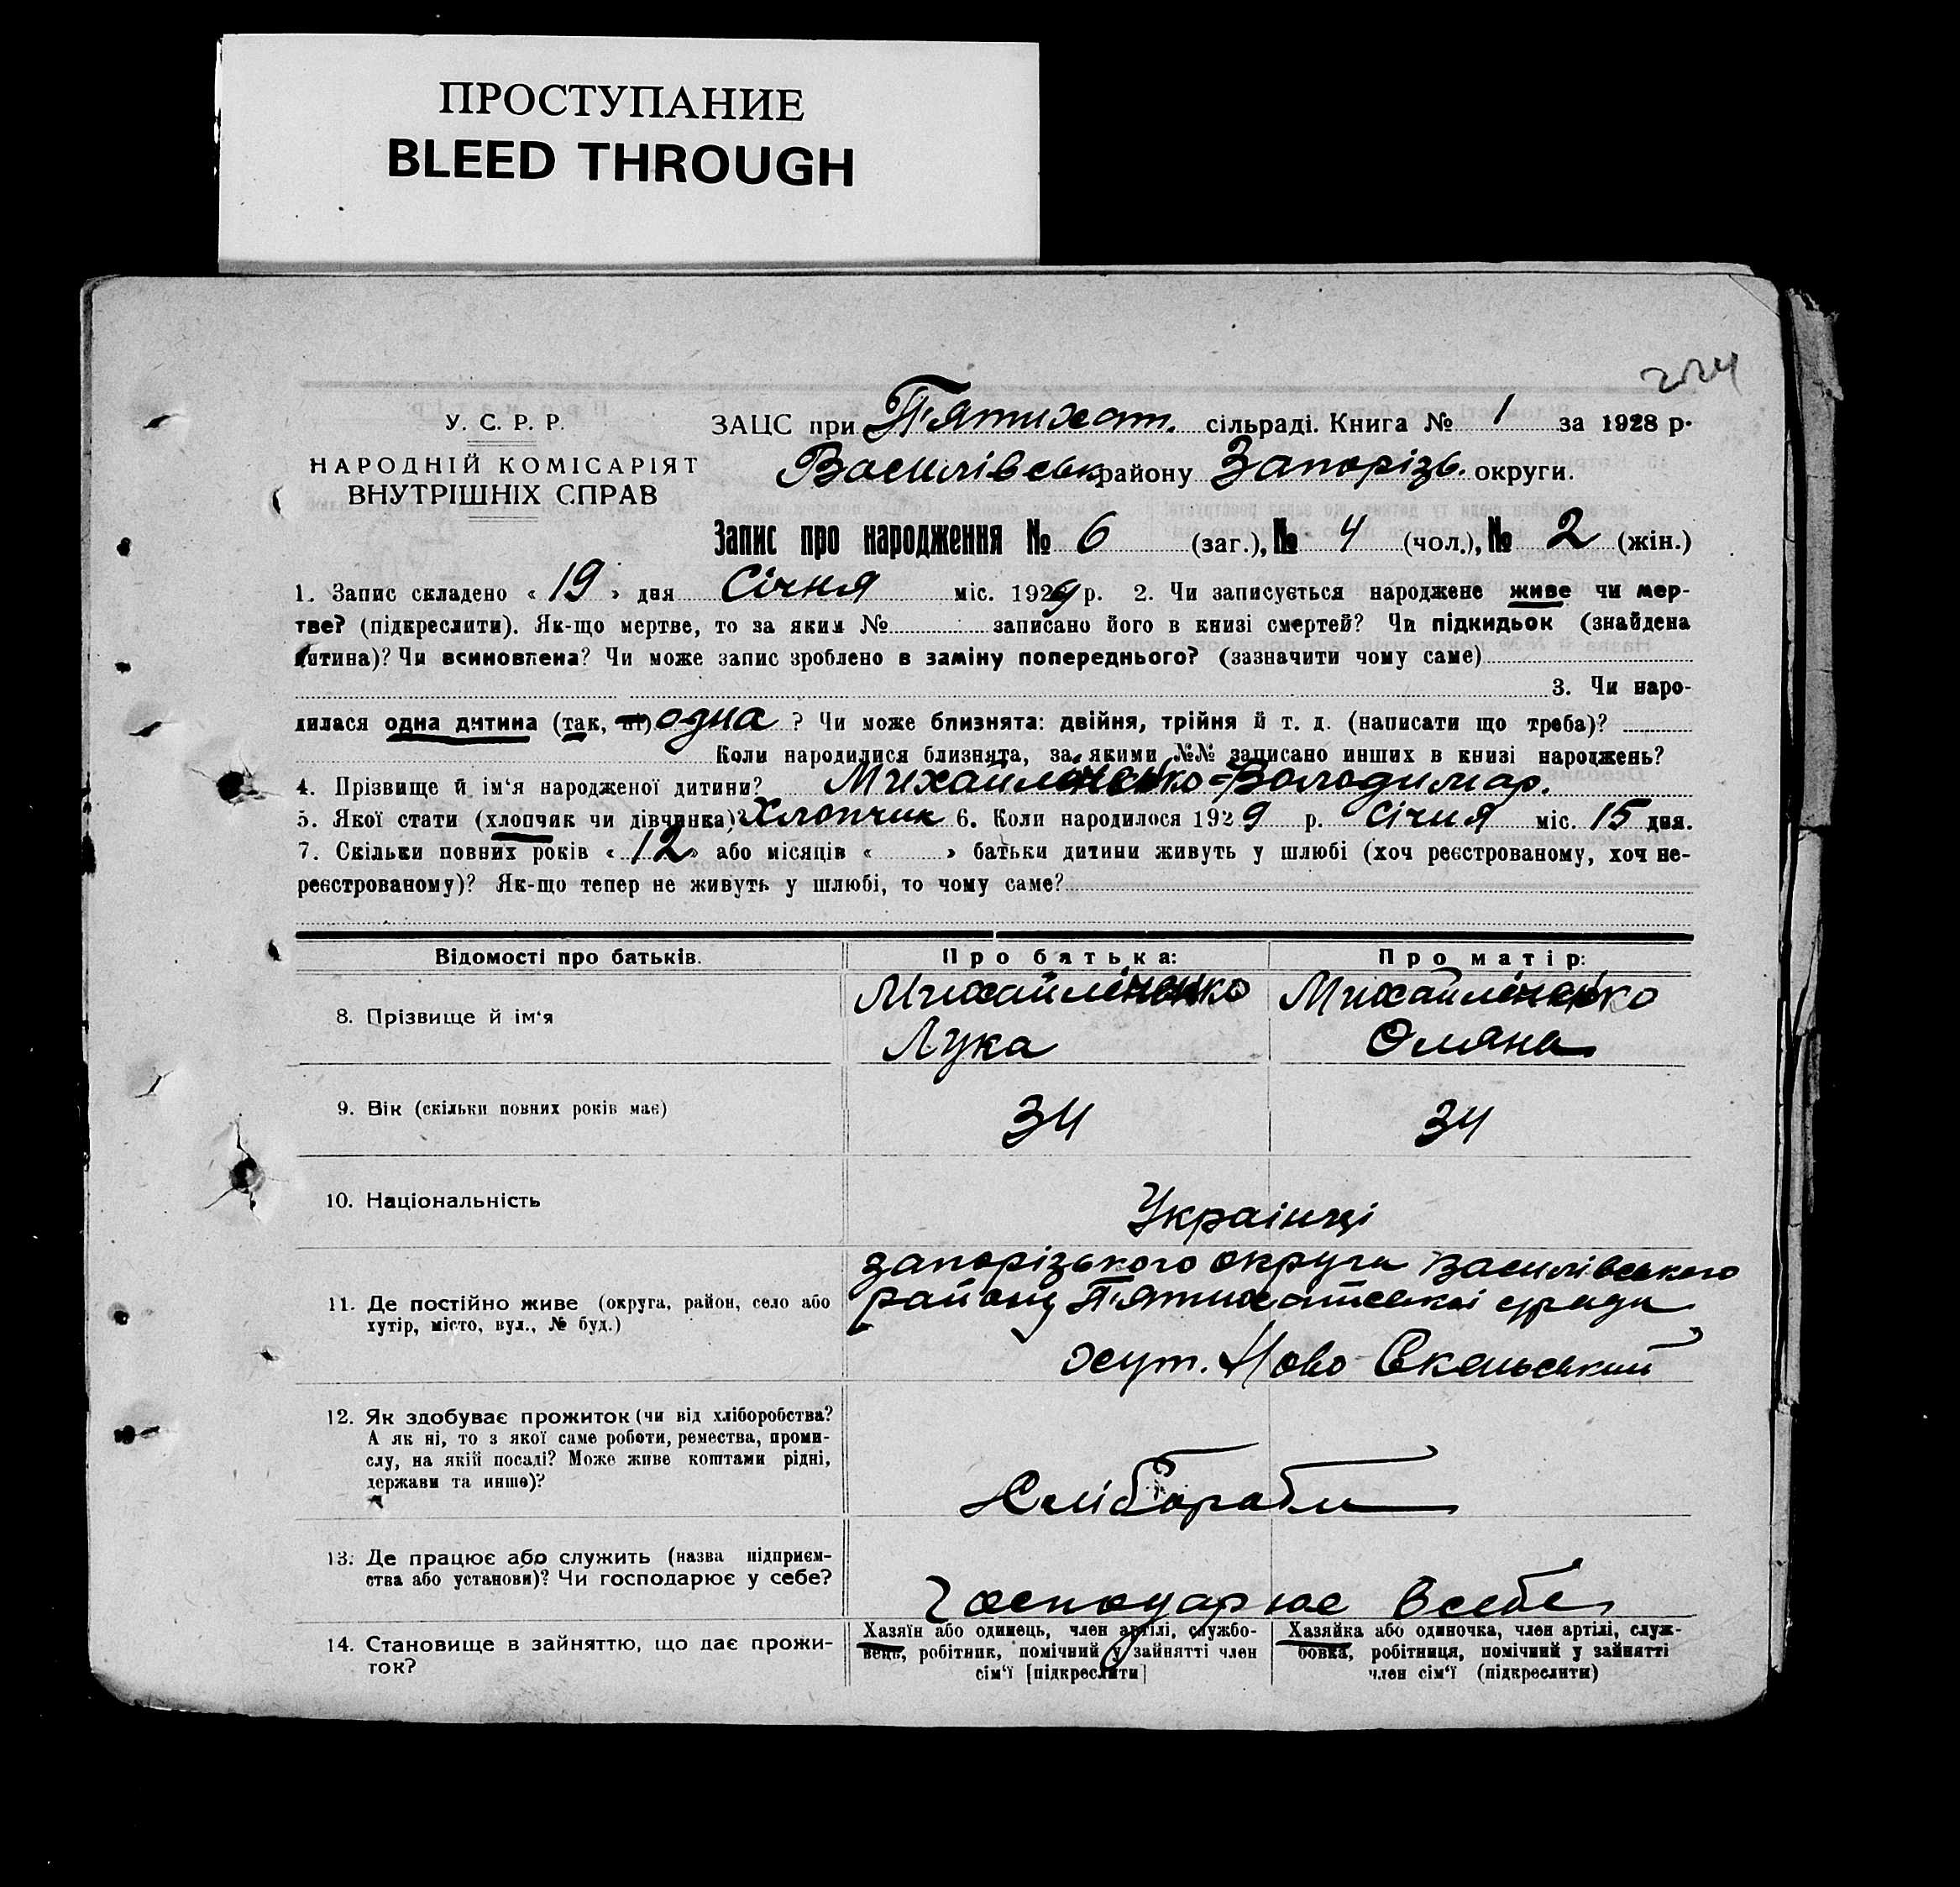 ПРОСТУПАНИЕ
BLEED THROUGH
224
У. С. Р. Р.
НАРОДНІЙ КОМІСАРІЯТ
ВНУТРІШНІХ СПРАВ
ЗАЦС при П'ятихат. сільраді. Книга № 1 за 1928 р.
Василівськ району Запорізь. округи.
Запис про народження № 6 (заг.), № 4 (чол.), № 2 (жін.)
1. Запис складено « 19 » дня Січня міс. 1929 р. 2. Чи записується народжене живе чи мер-
тве? (підкреслити). Як-що мертве, то за яким № записано його в книзі смертей? Чи підкидьок (знайдена
дитина)? Чи всиновлена? Чи може запис зроблено в заміну попереднього? (зазначити чому саме)
3. Чи наро-
дилася одна дитина (так, ні) одна ? Чи може близнята: двійня, трійня й т. д. (написати що треба)?
Коли народилися близнята, за якими №№ записано инших в книзі народжень?
4. Прізвище й ім'я народженої дитини? Михайліченко Володимир.
5. Якої стати (хлопчик чи дівчинка)? Хлопчик 6. Коли народилося 1929 р. Січня міс. 15 дня.
7. Скільки повних років « 12 » або місяців « » батьки дитини живуть у шлюбі (хоч реєстрованому, хоч не-
реєстрованому)? Як-що тепер не живуть у шлюбі, то чому саме?
Відомості про батьків. Про батька: Про матір:
8. Прізвище й ім'я
Михайліченко Михайліченко
Лука Оляна
9. Вік (скільки повних років має) 34 34
10. Національність Українці
11. Де постійно живе (округа, район, село або
хутір, місто, вул., № буд.)
Запорізького округи Василівського
району П'ятихатської с/ради
хут. Ново Скельський
12. Як здобуває прожиток (чи від хліборобства?
А як ні, то з якої саме роботи, ремества, проми-
слу, на якій посаді? Може живе коштами рідні,
держави та инше)?
Хлібороби
13. Де працює або служить (назва підприєм-
ства або установи)? Чи господарює у себе?
Господарює в себе
14. Становище в зайняттю, що дає прожи-
ток?
Хазяїн або одинець, член артілі, службо-
вець, робітник, помічний у зайнятті член
сім'ї [підкреслити]
Хазяйка або одиночка, член артілі, служ-
бовка, робітниця, помічний у зайнятті
член сім'ї (підкреслити)